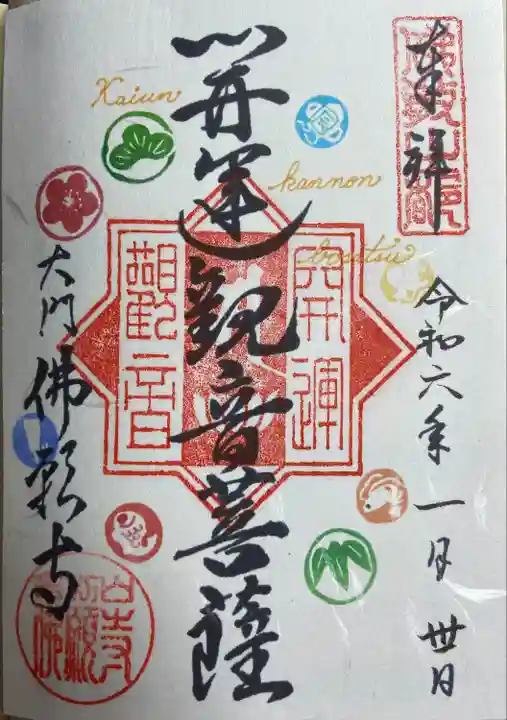 奉拝
令和六年一月卅日
Kaiun
kannon
bosatsu
開運観音菩薩
開運
觀音
大門
佛願寺